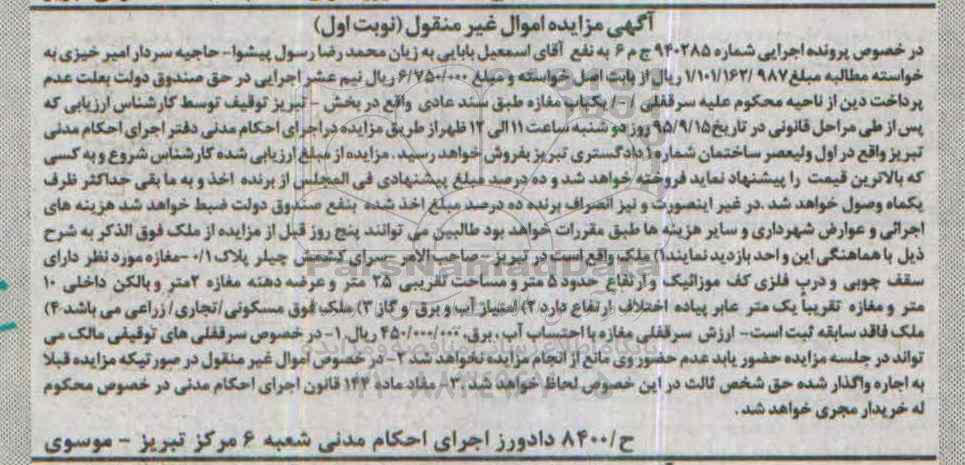 آگهی مزایده اموال غیر منقول (نوبت اول)
در خصوص پرونده اجرایی شماره ۹۴۰۲۸۵ ج م ۶ به نفع آقای اسمعیل بابایی به زیان محمد رضا رسول پیشوا- حاجیه سردار امیر خیزی به
خواسته مطالبه مبلغ ۹۸۷/ ۱/۱۰۱/۱۶۲ ریال از بابت اصل خواسته و مبلغ ۶/۷۵۰/۰۰۰ ریال نیم عشر اجرایی در حق صندوق دولت بعلت عدم
پرداخت دین از ناحیه محکوم علیه سرقفلی /-/ یکباب مغازه طبق سند عادی واقع در بخش - تبریز توقیف توسط کارشناس ارزیابی که
پس از طی مراحل قانونی در تاریخ ۹۵/۹/۱۵ روز دو شنبه ساعت ۱۱ الی ۱۲ ظهر از طریق مزایده در اجرای احکام مدنی دفتر اجرای احکام مدنی
تبریز واقع در اول ولیعصر ساختمان شماره ۱ دادگستری تبریز بفروش خواهد رسید . مزایده از مبلغ ارزیابی شده کارشناس شروع و به کسی
که بالاترین قیمت را پیشنهاد نماید فروخته خواهد شد و ده درصد مبلغ پیشنهادی فی المجلس از برنده اخذ و به ما بقی حداکثر ظرف
یکماه وصول خواهد شد .در غیر اینصورت و نیز انصراف برنده ده درصد مبلغ اخذ شده بنفع صندوق دولت ضبط خواهد شد هزینه های
اجرائی و عوارض شهرداری و سایر هزینه ها طبق مقررات خواهد بود طالبین می توانند پنج روز قبل از مزایده از ملک فوق الذکر به شرح
ذیل با هماهنگی این واحد بازدید نمایند۱) ملک واقع است در تبریز - صاحب الامر -سرای کشمش چیلر پلاک ۰/۱ -مغازه مورد نظر دارای
سقف چوبی و درب فلزی کف موزائیک و ارتفاع حدود ۵ متر و مساحت تقریبی ۲۵ متر و عرضه دهنه مغازه ۲متر و بالکن داخلی ۱۰
متر و مغازه تقریباً یک متر عابر پیاده اختلاف ارتفاع دارد ۲) امتیاز آب و برق و گاز ۳) ملک فوق مسکونی/تجاری/ زراعی می باشد۴)
ملک فاقد سابقه ثبت است- ارزش سرقفلی مغازه با احتساب آب ، برق، ۴۵۰/۰۰۰/۰۰۰ ریال ۱- در خصوص سرقفلی های توقیفی مالک می
تواند در جلسه مزایده حضور یابد عدم حضور وی مانع از انجام مزایده نخواهد شد ۲- در خصوص اموال غیر منقول در صورتیکه مزایده قبلا
به اجاره واگذار شده حق شخص ثالث در این خصوص لحاظ خواهد شد .۳- مفاد ماده ۱۴۴ قانون اجرای احکام مدنی در خصوص محکوم
له خریدار مجری خواهد شد .
ح/۸۴۰۰ دادورز اجرای احکام مدنی شعبه ۶ مرکز تبریز - موسوی
ParsNamadData